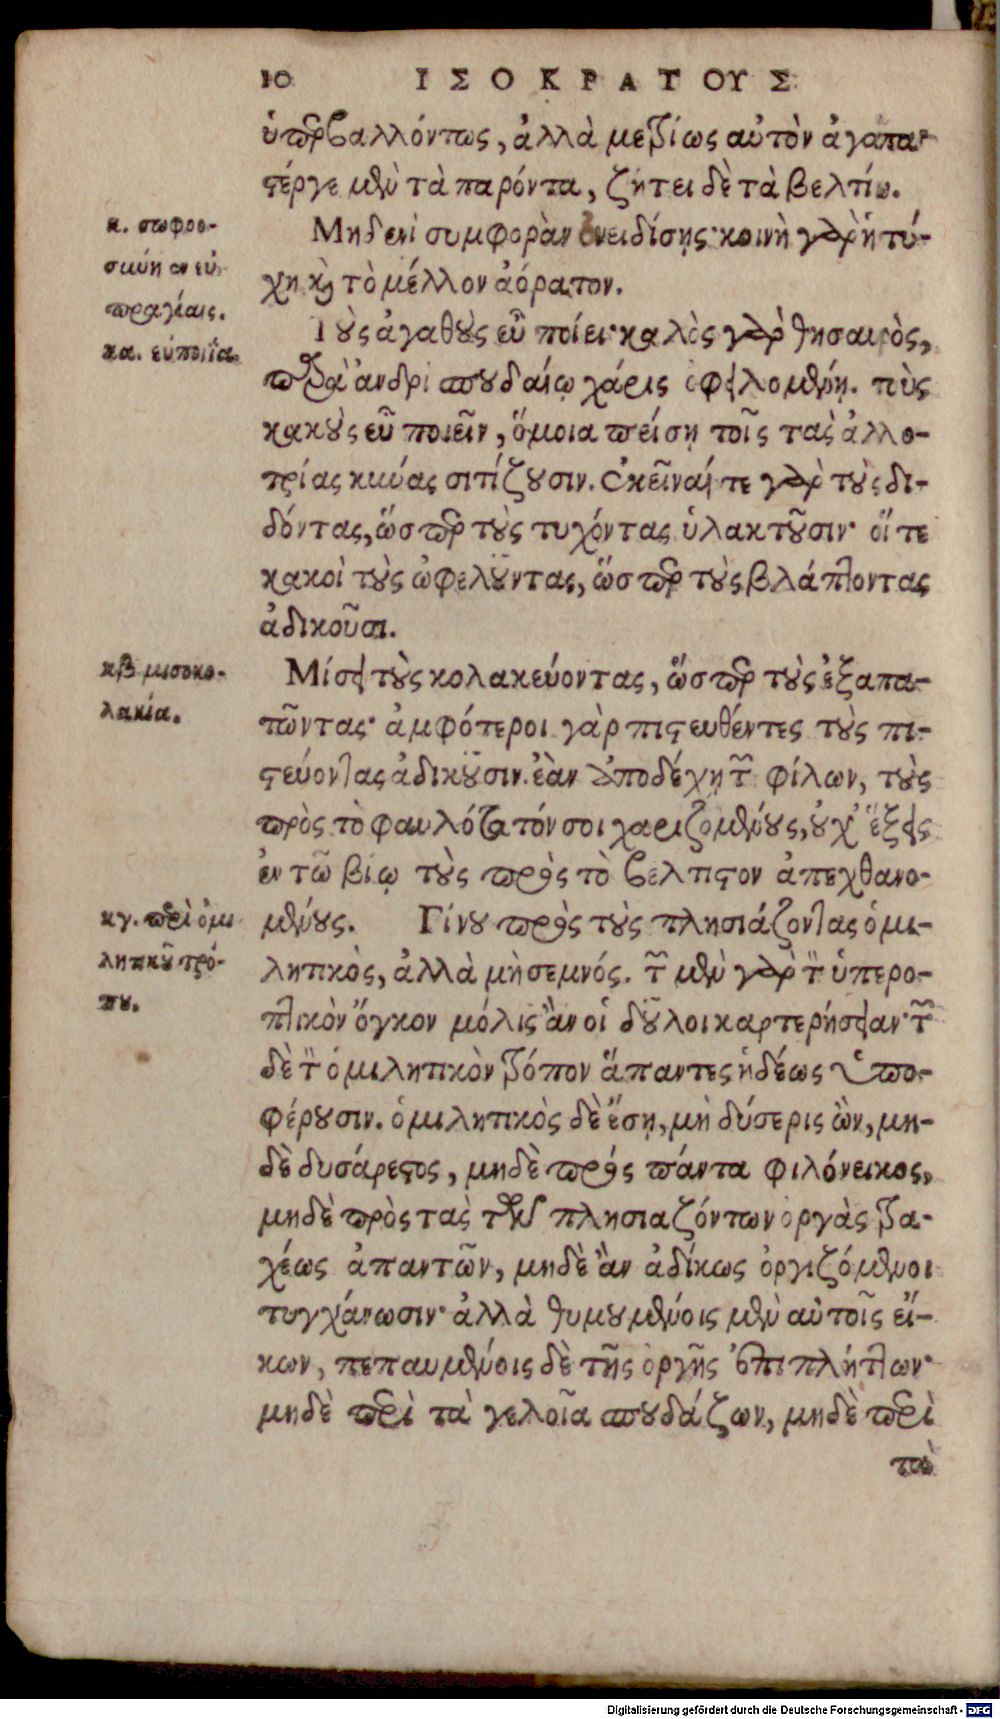 10 ΙΣΟΚΡΑΤΟΥΣ
ὑπερβαλλόντως, ἀλλὰ μετρίως αὐτὸν ἀγάπα·
στέργε μὲν τὰ παρόντα, ζήτει δὲ τὰ βελτίω.
κ. σωφρο-
σύνη ἐν εὐ-
πραγίαις.
Μηδενὶ συμφορὰν ὀνειδίσῃς· κοινὴ γὰρ ἡ τύ-
χη καὶ τὸ μέλλον ἀόρατον.
κα. εὐποιΐα.
Τοὺς ἀγαθοὺς εὖ ποίει· καλὸς γὰρ θησαυρὸς,
παρὰ ἀνδρὶ σπουδαίῳ χάρις ὀφειλομένη. τοὺς
κακοὺς εὖ ποιεῖν, ὅμοια πείσῃ τοῖς τὰς ἀλλο-
τρίας κύνας σιτίζουσιν. ἐκεῖναί τε γὰρ τοὺς δι-
δόντας, ὥσπερ τοὺς τυχόντας ὑλακτοῦσιν· οἵ τε
κακοὶ τοὺς ὠφελοῦντας, ὥσπερ τοὺς βλάπτοντας
ἀδικοῦσι.
κβ μισοκο-
λακία.
Μίσει τοὺς κολακεύοντας, ὥσπερ τοὺς ἐξαπα-
τῶντας· ἀμφότεροι γὰρ πιστευθέντες τοὺς πι-
στεύοντας ἀδικοῦσιν. ἐὰν ἀποδέχῃ τῶν φίλων, τοὺς
πρὸς τὸ φαυλότατόν σοι χαριζομένους, οὐχ ἕξεις
ἐν τῷ βίῳ τοὺς πρὸς τὸ βέλτιστον ἀπεχθανο-
μένους. Γίνου πρὸς τοὺς πλησιάζοντας ὁμι-
κγ. περὶ ὁμι
λητικοῦ τρό-
που.
λητικὸς, ἀλλὰ μὴ σεμνός. τὸν μὲν γὰρ τῶν ὑπερο-
πτικὸν ὄγκον μόλις ἂν οἱ δοῦλοι καρτερήσειαν· τὸν
δὲ τῶν ὁμιλητικὸν τρόπον ἅπαντες ἡδέως ὑπο-
φέρουσιν. ὁμιλητικὸς δὲ ἔσῃ, μὴ δύσερις ὢν, μη-
δὲ δυσάρεστος, μηδὲ πρὸς πάντα φιλόνεικος,
μηδὲ πρὸς τὰς τῶν πλησιαζόντων ὀργὰς τρα-
χέως ἀπαντῶν, μηδὲ ἂν ἀδίκως ὀργιζόμενοι
τυγχάνωσιν· ἀλλὰ θυμουμένοις μὲν αὐτοῖς εἴ-
κων, πεπαυμένοις δὲ τῆς ὀργῆς ἐπιπλήττων·
μηδὲ περὶ τὰ γελοῖα σπουδάζων, μηδὲ περὶ
τὰ
Digitalisierung gefördert durch die Deutsche Forschungsgemeinschaft - DFG